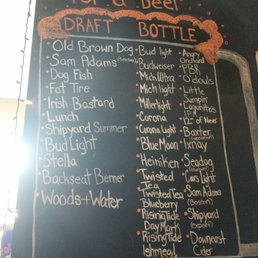 for a Beer
DRAFT BOTTLE
Old Brown Dog
Sam Adams
Dog Fish
Fat Tire
Irish Bastard
Lunch
Shipyard Summer
Bud Light
Stella
Backseat Berner
Woods + Water
Bud light
Budweiser
Mich Ultra
Mich light
Miller light
Corona
Corona Light
Blue Moon
Heiniken
Twisted
Tea
Twisted Tea
Blueberry
Rising Tide
Day Mark
Rising Tide
Ishmael
Angry
Orchard
PBR
O'douls
Little
Sumpin'
Lagunitas
IPA
12° of Never
Baxter
Ixnay
Seadog
Coors Light
Sam Adams
(Boston)
Shipyard
(Export)
Downeast
Cider